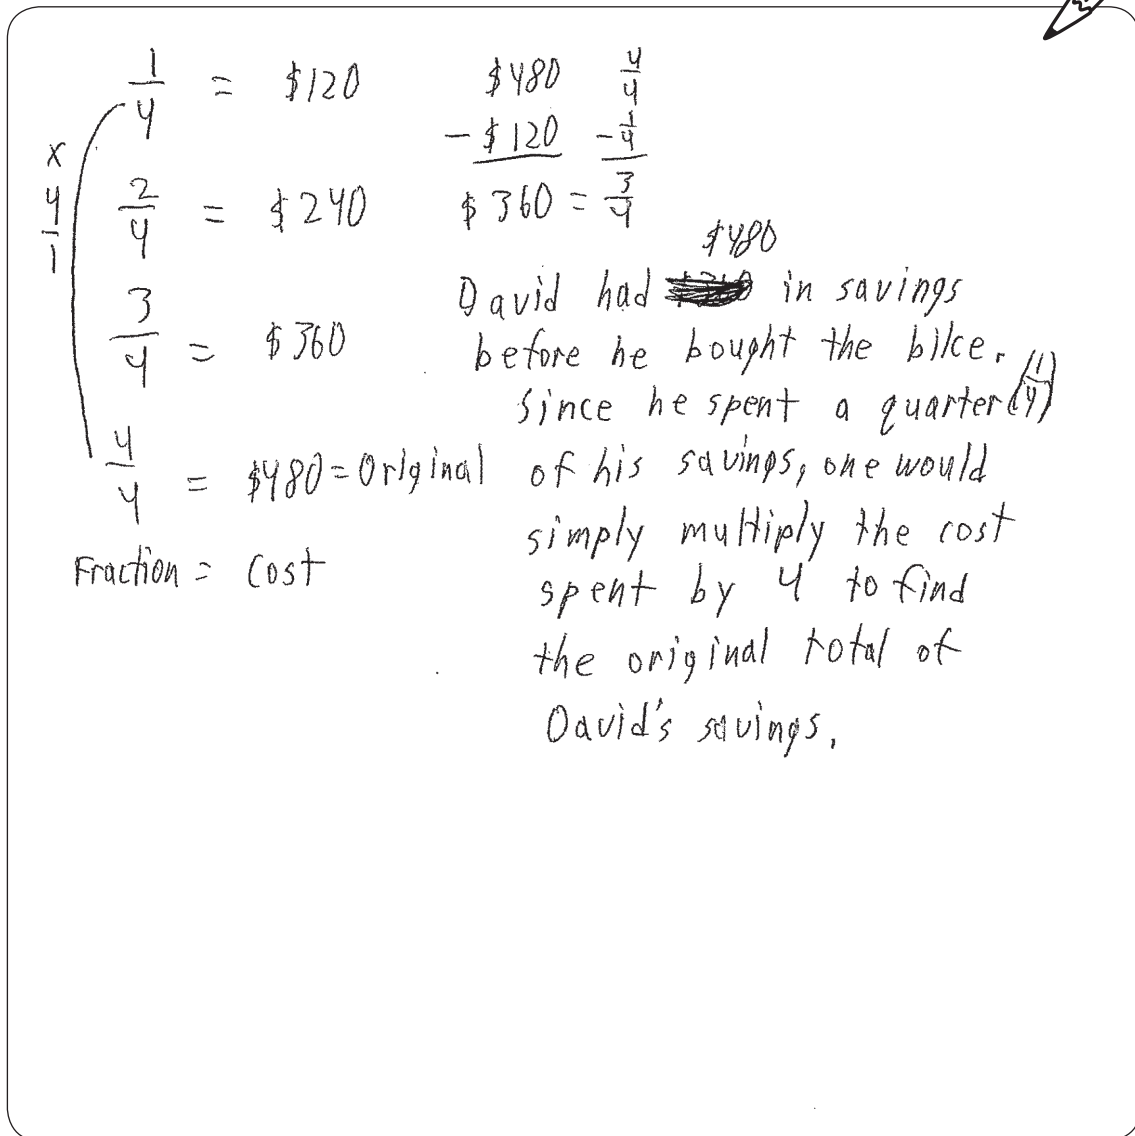 1/4 = $120
x 4/1
2/4 = $240
3/4 = $360
4/4 = $480 = Original
Fraction = Cost
$480 4/4
- $120 - 1/4
$360 = 3/4
$480
David had in savings
before he bought the bike.
Since he spent a quarter (1/4)
of his savings, one would
simply multiply the cost
spent by 4 to find
the original total of
David's savings.